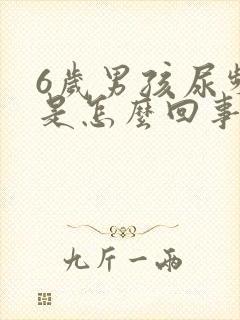 6歲男孩尿頻
是怎麼回事
九斤一兩